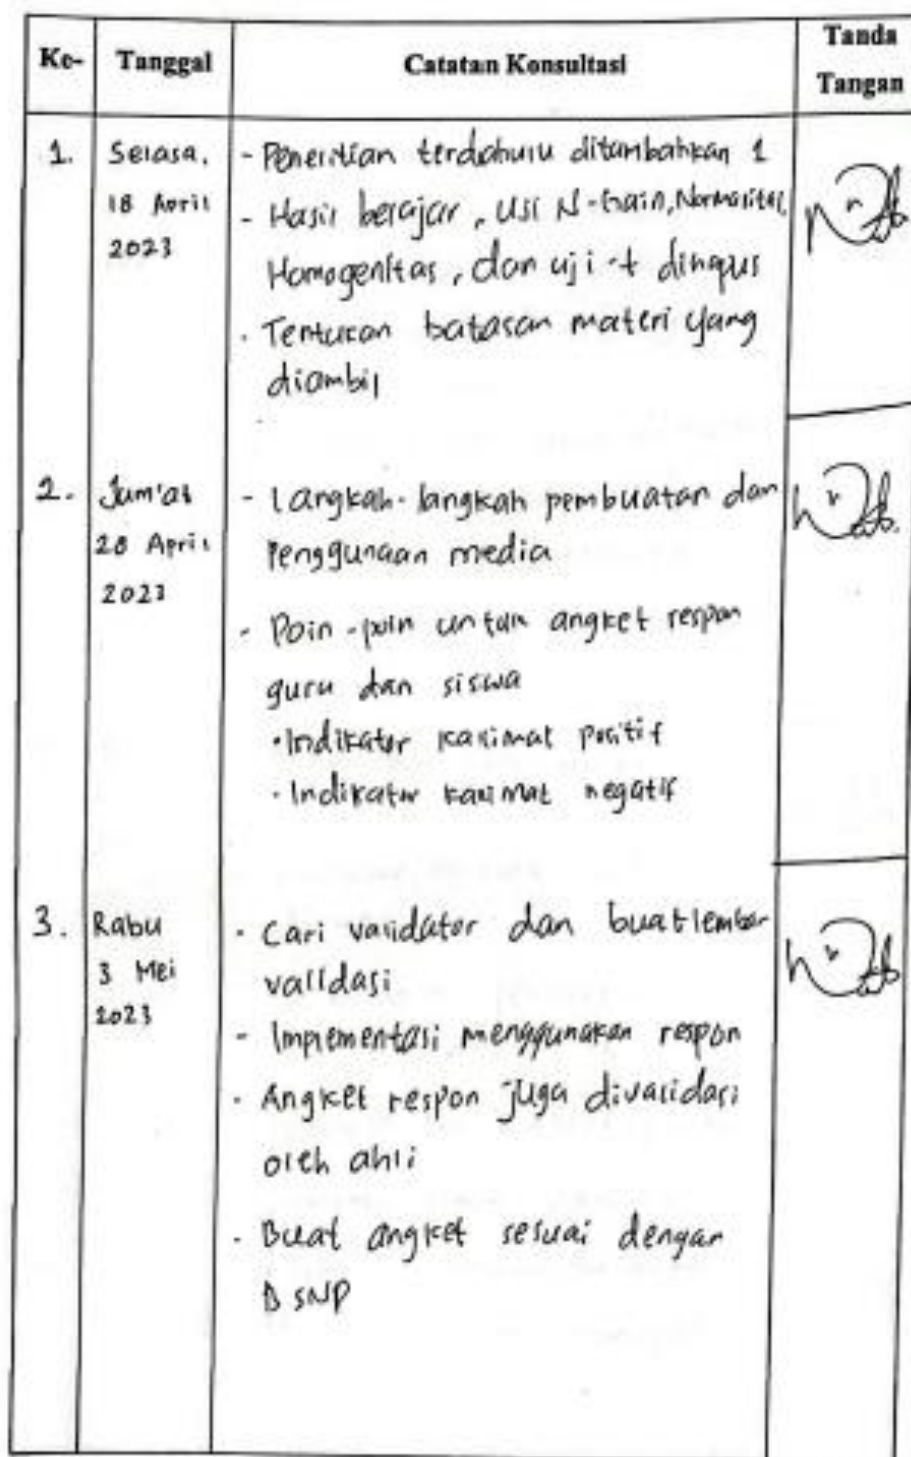 Ke- Tanggal Catatan Konsultasi Tanda Tangan
1. Selasa, 18 April 2023
- Penelitian terdahulu ditambahkan 1
- Hasil belajar, Uji N-Gain, Normalitas,
Homogenitas, dan uji-t dihapus
- Tentukan batasan materi yang
diambil
2. Jum'at 28 April 2023
- Langkah-langkah pembuatan dan
Penggunaan media
- Poin-poin untuk angket respon
guru dan siswa
• Indikator kalimat Positif
• Indikator kalimat negatif
3. Rabu 3 Mei 2023
- Cari validator dan buat lembar
validasi
- Implementasi menggunakan respon
- Angket respon juga divalidasi
oleh ahli
- Buat angket sesuai dengan
BSNP